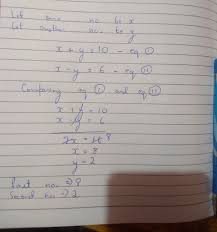 Let one no. be x
Let another no. be y
x + y = 10 - eq ①
x - y = 6 - eq ②
Comparing eq ① and eq ②
x + y = 10
x - y = 6
2x = 16 8
x = 8
y = 2
First no. → 8
Second no. → 2